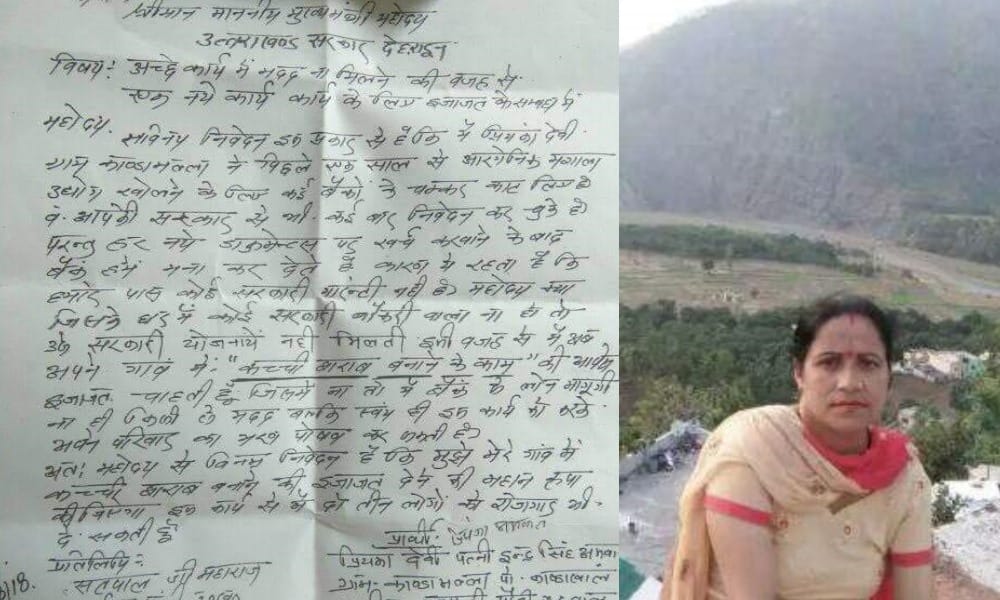 श्रीमान माननीय मुख्यमंत्री महोदय
उत्तराखण्ड सरकार देहरादून
विषय: अच्छे कार्य में मदद ना मिलने की वजह से
एक नये कार्य कार्य के लिए इजाजत के सम्बन्ध में
महोदय,
सविनय निवेदन इस प्रकार से है कि मैं प्रियंका देवी
ग्राम काण्डामल्ला ने पिछले एक साल से आरगेनिक मसाला
उद्योग खोलने के लिए कई बैंकों के चक्कर काट लिए है
व आपकी सरकार से भी कई बार निवेदन कर चुके है
परन्तु हर नये डाकुमेन्टस पर खर्च करवाने के बाद
बैंक हमें मना कर देते है कारण ये रहता है कि
हमारे पास कोई सरकारी गारंन्टी नही है। महोदय क्या
जिसके घर में कोई सरकारी नौकरी वाला ना हो तो
उसे सरकारी योजनायें नही मिलती इसी वजह से मैं अब
अपने गाव में "कच्ची शराब बनाने के काम" की आपसे
इजाजत चाहती हूँ जिसमें ना तो मैं बैंक से लोन मागूगी
ना ही किसी से मदद बल्कि स्वंय ही इस कार्य को करके
अपने परिवार का भरण पोषण कर सकती है।
अतः महोदय से विनम्र निवेदन है कि मुझे मेरे गांव में
कच्ची शराब बनाने की इजाजत देने की महान कृपा
की जिएगा इस कार्य से मैं दो तीन लोगों को रोजगार भी
दे सकती हूँ
प्रार्थी
प्रतिलिपि:- प्रियंका देवी पत्नी इन्द्र सिंह
सतपाल जी महाराज ग्राम- काण्डामल्ला पो.
18.